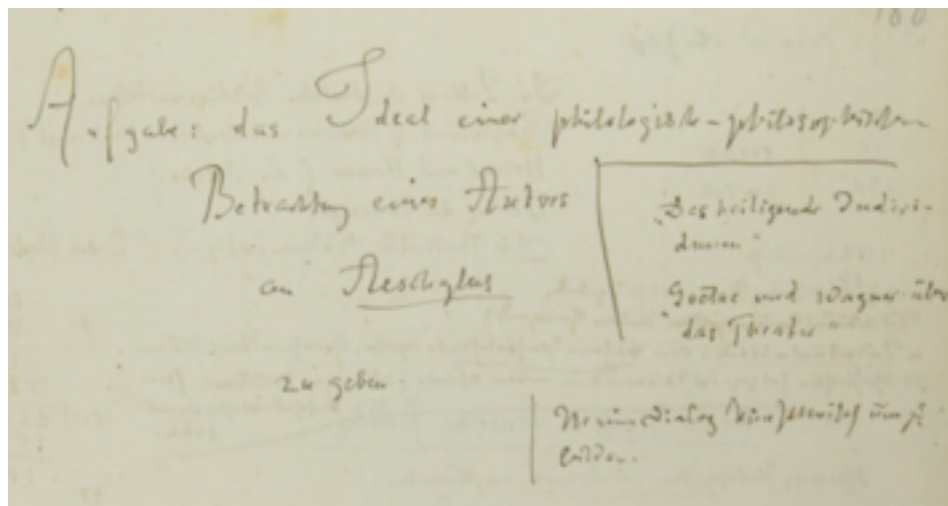 180
Aufgabe: das Ideal einer philologisch-philosophischen
Betrachtung eines Autors
an Aeschylus
zu geben.
„Das heiligende Indivi-
duum"
„Goethe und Wagner über
das Theater"
dialog künstlerisch um zu
bilden.